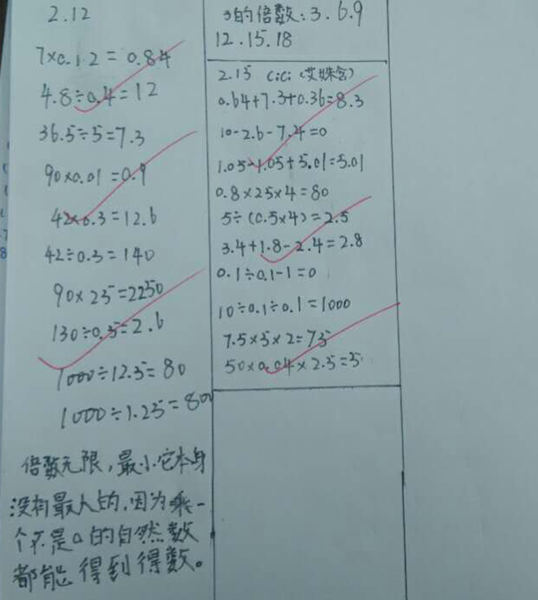 2.12
7×0.12=0.84
4.8÷0.4=12
36.5÷5=7.3
90×0.01=0.9
42×0.3=12.6
42÷0.3=140
90×25=2250
130÷0.5=2.6
1000÷12.5=80
1000÷1.25=800
倍数无限,最小它本身
没有最大的,因为乘一
个不是0的自然数
都能得到得数。
3的倍数:3.6.9
12.15.18
2.15 cici
0.64+7.3+0.36=8.3
10-2.6-7.4=0
1.05-1.05+5.01=5.01
0.8×25×4=80
5÷(0.5×4)=2.5
3.4+1.8-2.4=2.8
0.1÷0.1-1=0
10÷0.1÷0.1=1000
7.5×5×2=75
50×0.04×2.5=5